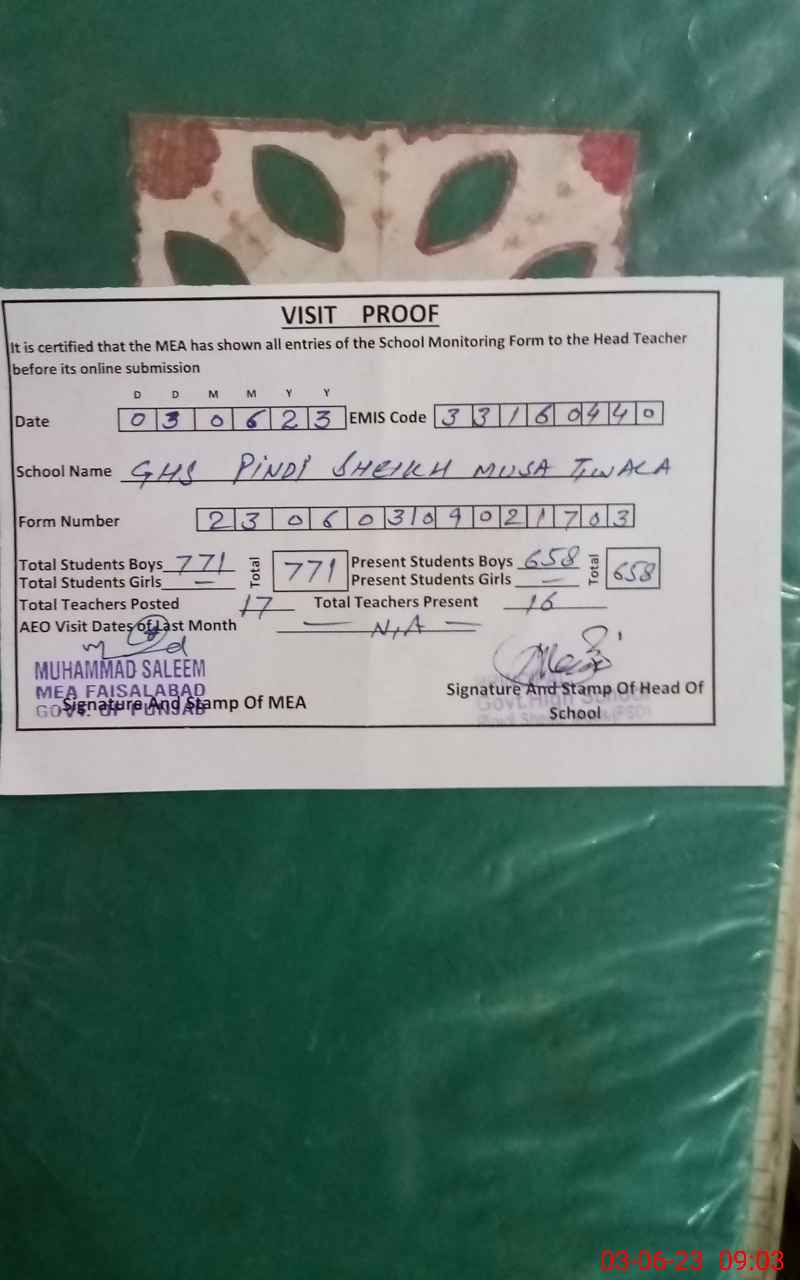 VISIT PROOF
It is certified that the MEA has shown all entries of the School Monitoring Form to the Head Teacher
before its online submission
D D M M Y Y
Date 0 3 0 6 2 3 EMIS Code 3 3 1 6 0 4 4 0
School Name GHS PINDI SHEIKH MUSA
Form Number 2 3 0 6 0 3 0 9 0 2 1 7 0 3
Total Students Boys 771 Total 771 Present Students Boys 658 Total 658
Total Students Girls — Present Students Girls —
Total Teachers Posted 17 Total Teachers Present 16
AEO Visit Dates of Last Month — N,A —
MUHAMMAD SALEEM
MEA FAISALABAD
GOVT. OF PUNJAB
Signature And Stamp Of MEA
Signature And Stamp Of Head Of
Govt.High School
School
03-06-23 09:03